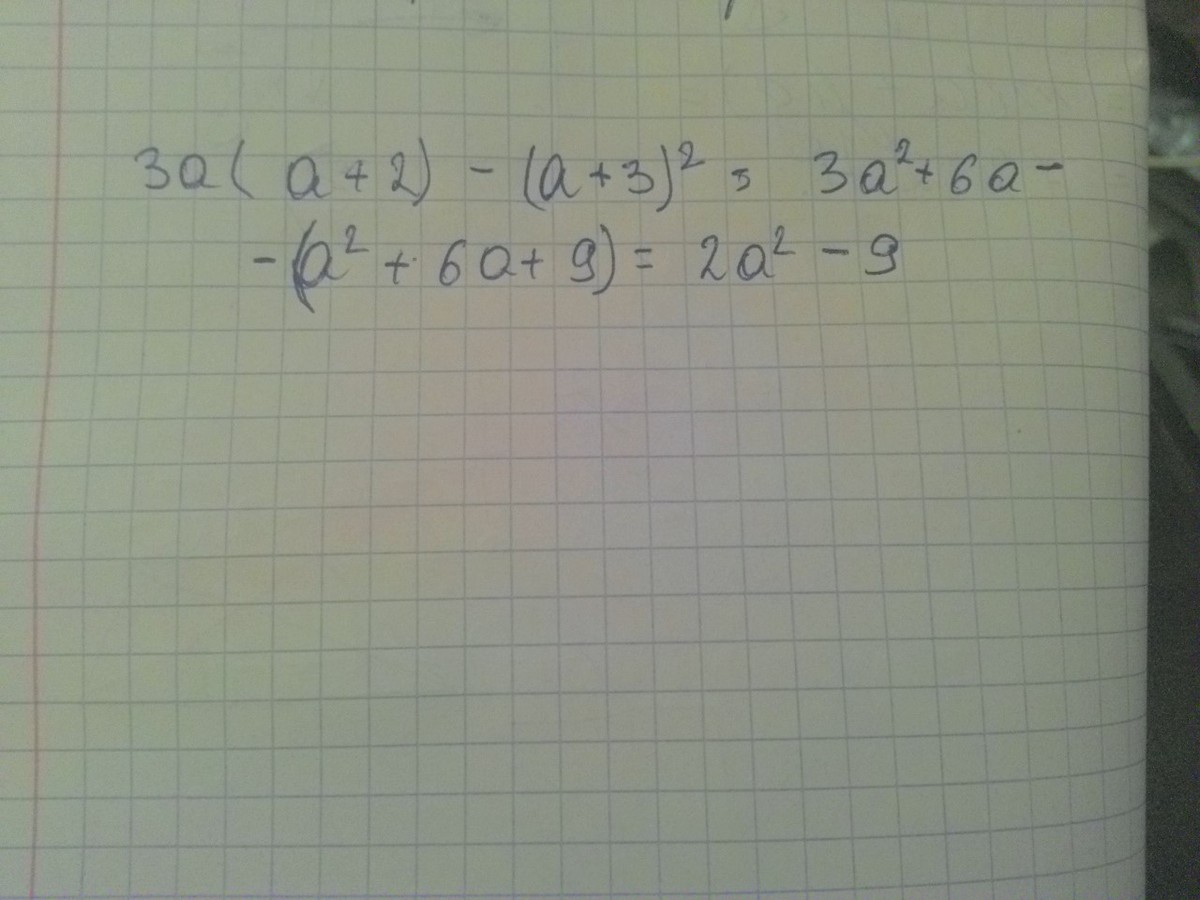 3a(a+2) - (a+3)² = 3a² + 6a -
-(a² + 6a + 9) = 2a² - 9